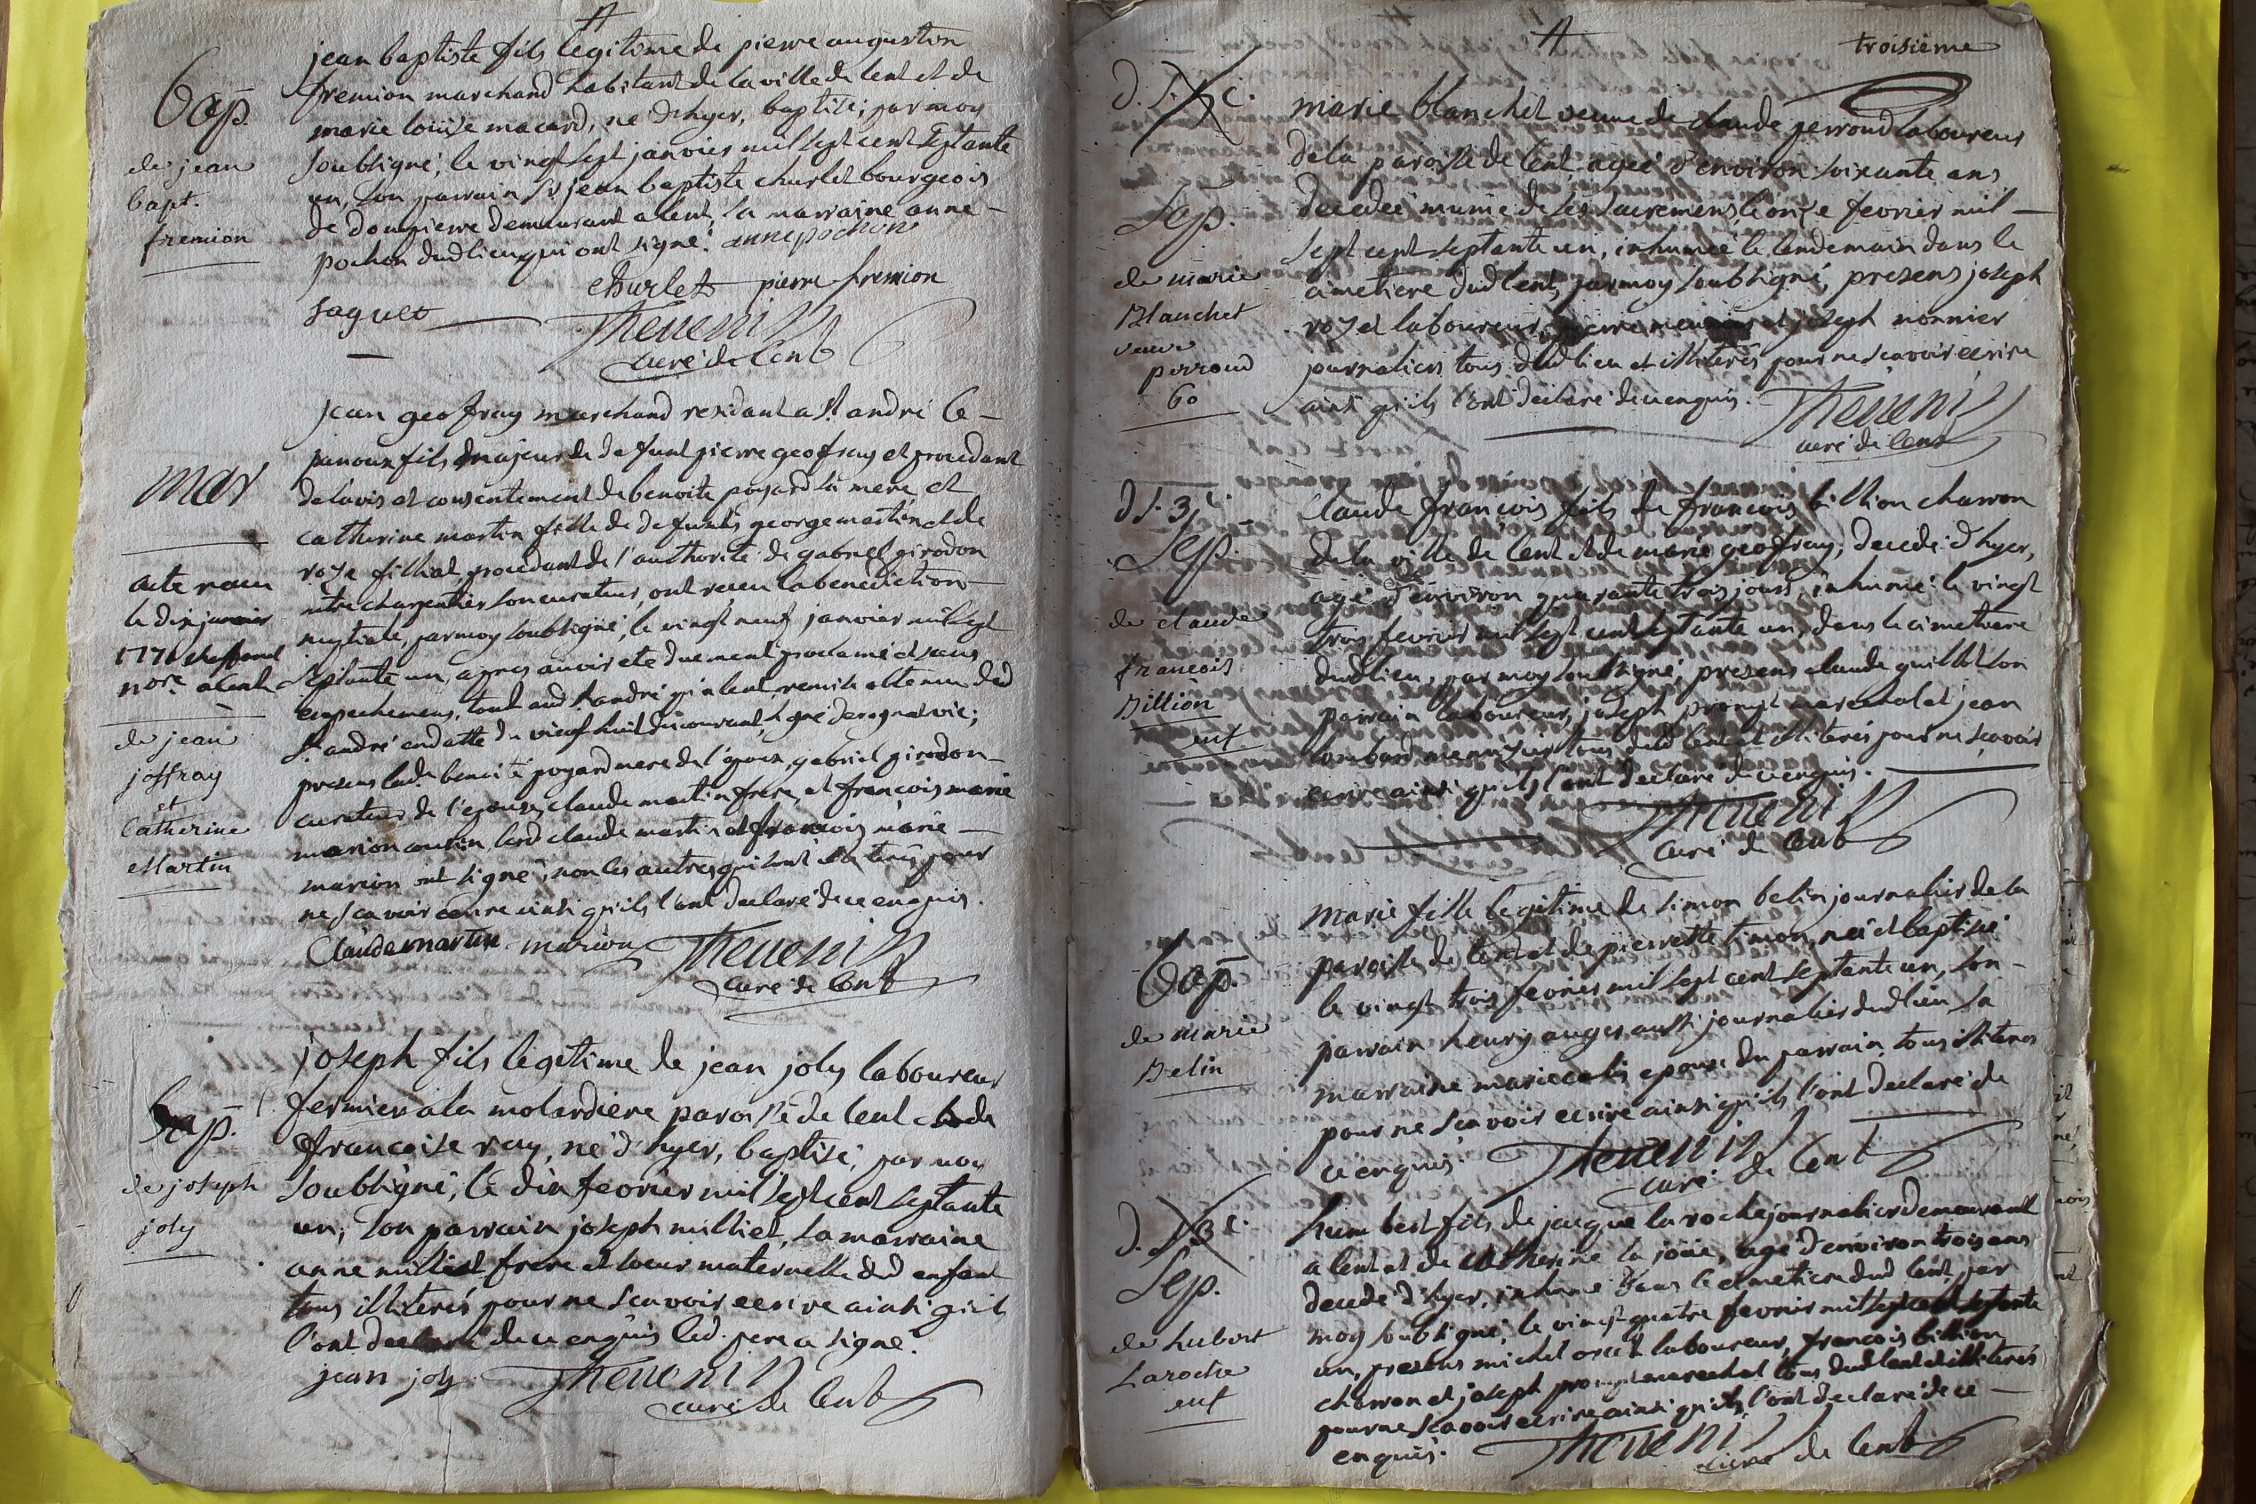 jean baptiste fils legitime de pierre augustin
fremion marchand habitant de la ville de lent et de
marie loüise macard, ne d'hyer, baptisé; par moy
soubsigné, le vingt sept janvier mil sept cent septante
un, son parrain Sr jean baptiste churlet bourgeois
de dompierre demeurant a lent, la marraine anne
pochon dud lieu qui ont signé. anne pochon
churlet pierre fremion
saguet
Thevenin
curé de lent
Bap.
de jean
bapt.
fremion
jean geofray marchand residant a St andré le
panoux fils majeur de defunt pierre geofray et procedant
de l'avis et consentement de benoite poyard sa mere, et
catherine martin fille de defunts george martin et de
filliat, procedant de l'authorité de gabriel girodon
mtre charpentier son curateur, ont receu la benediction
nuptiale, par moy soubsigné, le vingt neuf janvier mil sept
septante un, apres avoir été duement proclamé et sans
empechemens, tant aud St andré qu'a lent, remise obtenue dud
St andré en datte du vingt huit du courant, signé derognat vic;
presens lad. benoite poyard mere de l'epoux, gabriel girodon
curateur de l'epouse, claude martin frere, et françois marie
marion cousin, lesd claude martin et françois marie
marion ont signé, non les autres qui sont illiterés pour
ne sçavoir ecrire ainsi qu'ils l'ont declaré de ce enquis.
Claude martin marion Thevenin
curé de lent
mar
acte receu
le dix janvier
1771
nore. a lent
de jean
joffray
et
Catherine
Martin
joseph fils legitime de jean joly laboureur
fermier a la molardiere paroisse de lent et de
françoise ray, né d'hyer, baptisé, par moy
soubsigné, le dix fevrier mil sept cent septante
un, son parrain joseph milliet, la marraine
anne milliet frere et soeur maternelle dud enfant
tous illiterés pour ne sçavoir ecrire ainsi qu'il
l'ont declaré de ce enquis led. pere a signé.
jean joly Thevenin
curé de lent
Bap.
de joseph
joly
troisième
marie blanchet veuve de claude perroud laboureur
de la paroisse de lent agée d'environ soixante ans
decedée munie de ses sacremens le onze fevrier mil
sept cent septante un, inhumée le lendemain dans le
cimetiere dud lent, par moy soubsigné, presens joseph
royet laboureur, pierre meunier et joseph monnier
journaliers tous dud lieu et illiterés pour ne sçavoir ecrire
ainsi qu'ils l'ont declaré de ce enquis.
Thevenin
curé de lent
Sep.
de marie
Blanchet
veuve
perroud
60
claude françois fils de françois billion charron
de la ville de lent et de marie geofray, decedé d'hyer,
agé d'environ quarante trois jours, inhumé le vingt
trois fevrier mil sept cent septante un, dans le cimetiere
dud lieu, par moy soubsigné, presens claude guillot son
parrain laboureur, joseph prompt marechal et jean
lombard menuzier tous dud lent et illiterés pour ne sçavoir
ecrire ainsi qu'ils l'ont declaré de ce enquis.
Thevenin
curé de lent
Sep.
de claude
françois
Billion
enf
marie fille legitime de simon belin journalier de la
paroisse de lent et de pierrette timon, née et baptisée
le vingt trois fevrier mil sept cent septante un, son
parrain henry auger aussi journalier dud lieu sa
marraine marie epouse du parrain, tous illiterés
pour ne sçavoir ecrire ainsi qu'ils l'ont declaré de
ce enquis. Thevenin
curé de lent
Bap.
de marie
Belin
humbert fils de jacque laroche journalier demeurant
a lent et de catherine la joüie, agé d'environ trois ans
decedé d'hyer, inhumé dans le cimetiere dud lent, par
moy soubsigné, le vingt quatre fevrier mil sept cent septante
un, presens michel laboureur, françois billion
charron et joseph prompt marechal tous dud lent et illiterés
pour ne sçavoir ecrire ainsi qu'ils l'ont declaré de ce
enquis. Thevenin
curé de lent
Sep.
de hubert
Laroche
enf